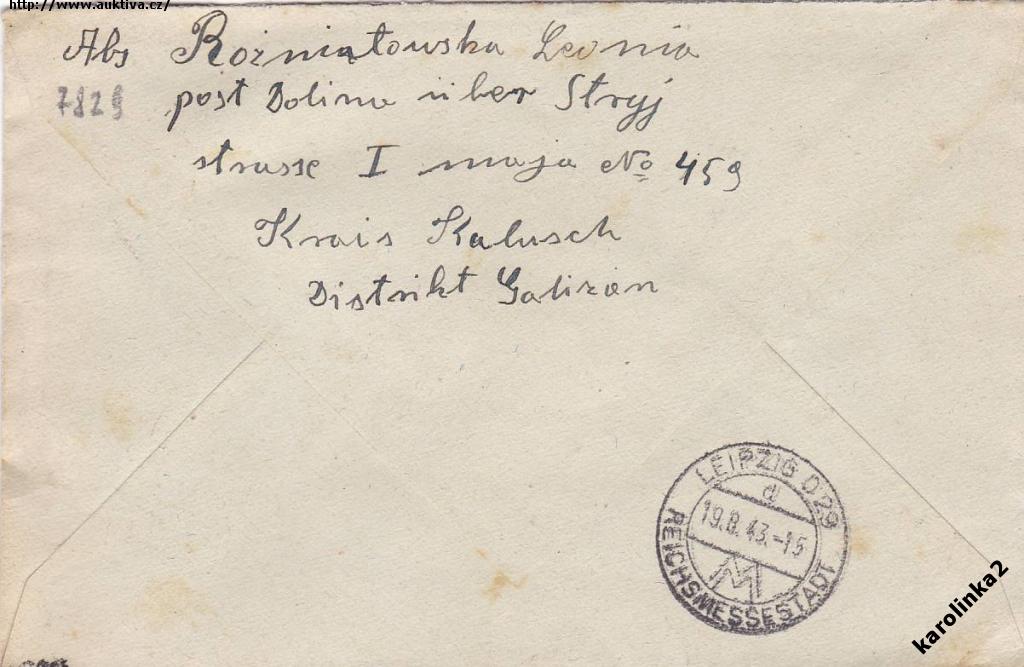 http://www.auktiva.cz/
Abs Rożniatowska Leonia
7829
post Dolina über Stryj
strasse I maja No 459
Krais Kalusch
Distrikt Galizon
LEIPZIG O 29
d
19.8.43.-15
M
REICHSMESSESTADT
karolinka2